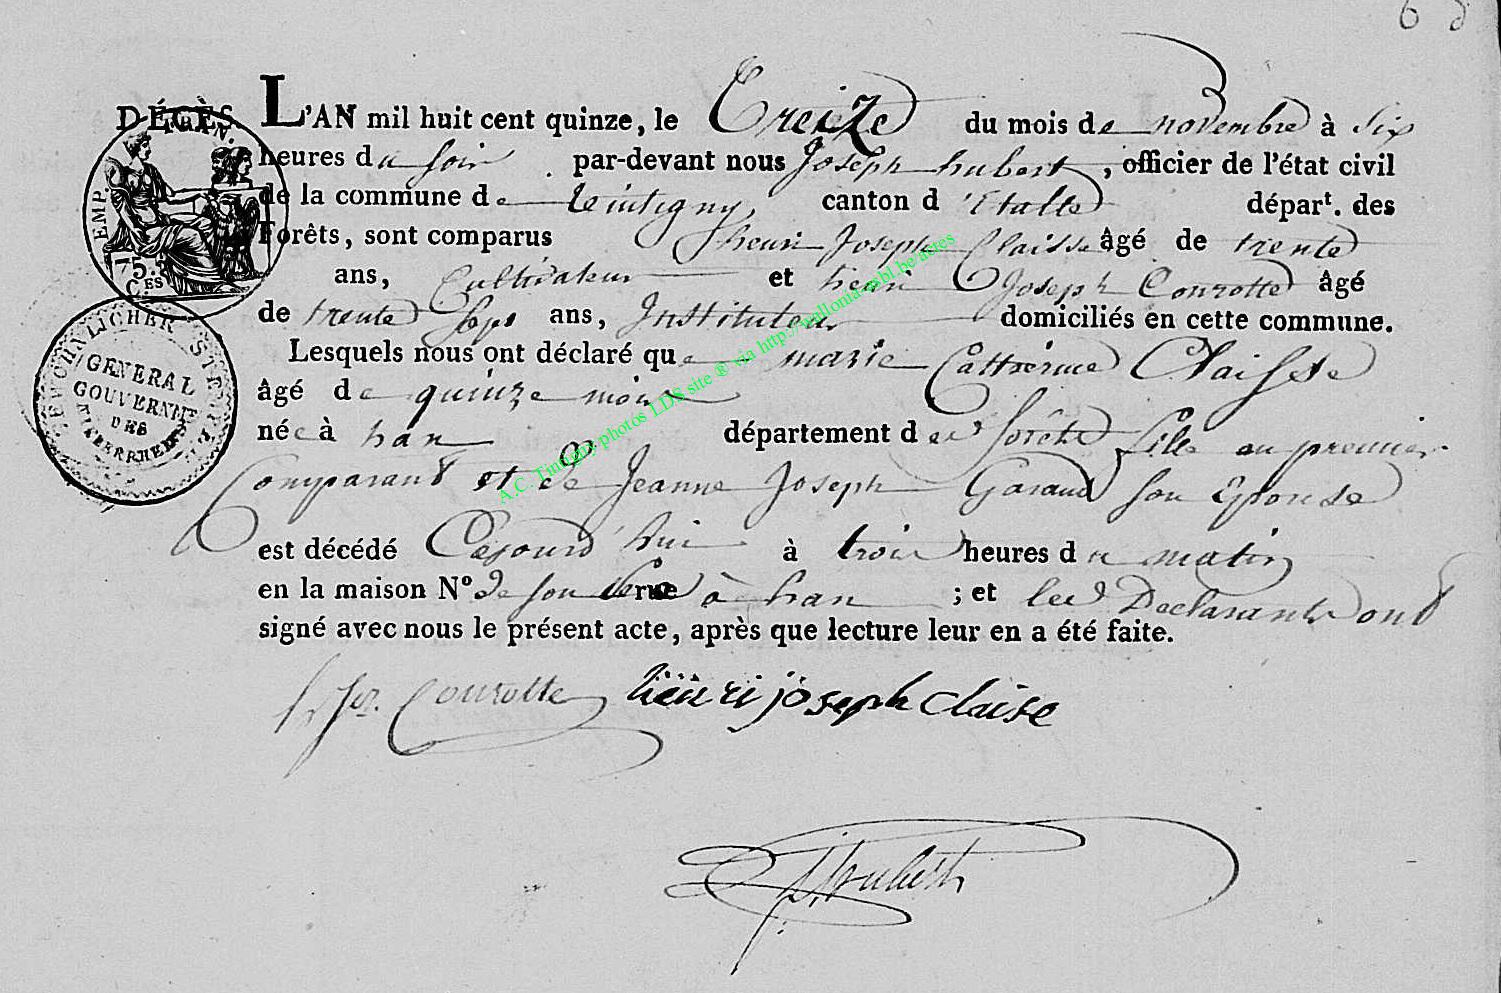 6 8
DÉCÈS. L'AN mil huit cent quinze, le Treize du mois de novembre à six
heures du soir par-devant nous Joseph hubert, officier de l'état civil
de la commune de tintigny, canton d'Etalle départ. des
Forêts, sont comparus henri Joseph Claisse âgé de trente
ans, Cultivateur et henri Joseph Courotte âgé
de trente sept ans, Instituteur domiciliés en cette commune.
Lesquels nous ont déclaré que marie Catherine Claisse
âgé de quinze mois
née à han département des forêts fille au premier
Comparant et de Jeanne Joseph Garaud son Epouse
est décédé Cejourd'hui à trois heures du matin
en la maison Nº de son père rue à han ; et les Declarants ont
signé avec nous le présent acte, après que lecture leur en a été faite.
h. Jos. Courotte henri joseph claise
J. hubert
EMP. FRAN.
75. CES
GENERAL
GOUVERNMT
DES
A.C. Tintigny photos LDS site ® via http://wallonia-asbl.be/actes